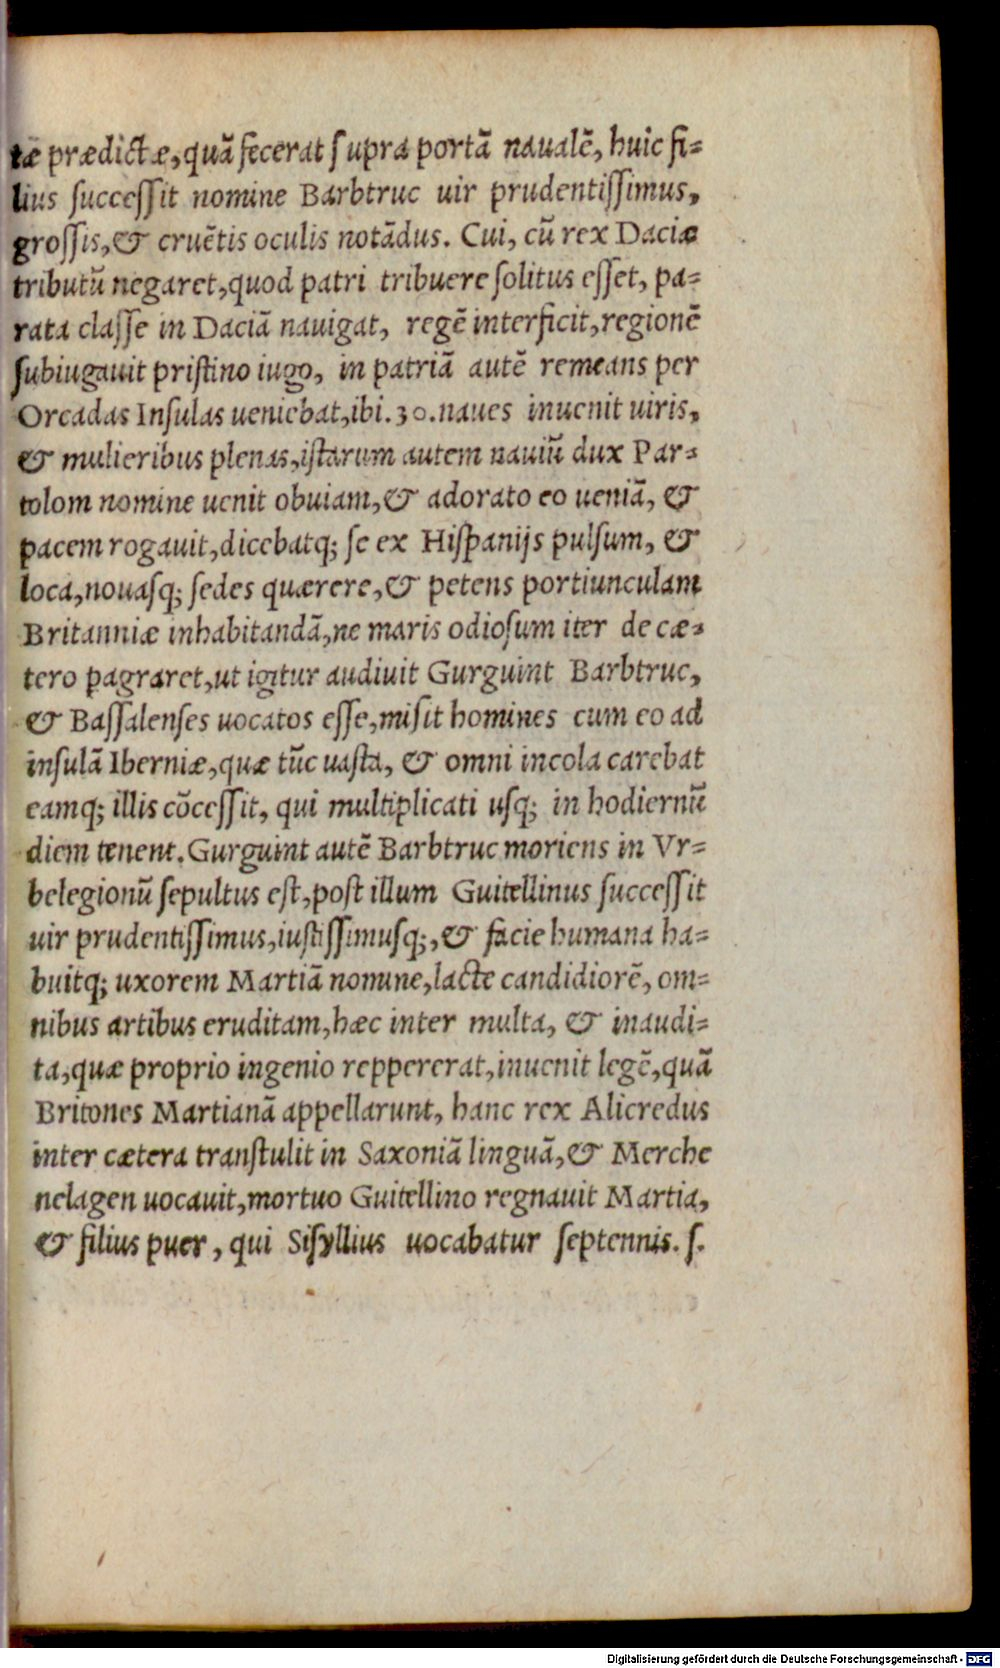 tæ prædictæ, quã fecerat supra portã naualẽ, huic fi-
lius successit nomine Barbtruc uir prudentissimus,
grossis, & cruẽtis oculis notãdus. Cui, cũ rex Daciæ
tributũ negaret, quod patri tribuere solitus esset, pa-
rata classe in Daciã nauigat, regẽ interficit, regionẽ
subiugauit pristino iugo, in patriã autẽ remeans per
Orcadas Insulas ueniebat, ibi. 30. naues inuenit uiris,
& mulieribus plenas, istarum autem nauiũ dux Par-
tolom nomine uenit obuiam, & adorato eo ueniã, &
pacem rogauit, dicebatq; se ex Hispanijs pulsum, &
loca, nouasq; sedes quærere, & petens portiunculam
Britanniæ inhabitandã, ne maris odiosum iter de cæ-
tero pagraret, ut igitur audiuit Gurguint Barbtruc,
& Bassalenses uocatos esse, misit homines cum eo ad
insulã Iberniæ, quæ tũc uasta, & omni incola carebat
eamq; illis cõcessit, qui multiplicati usq; in hodiernũ
diem tenent. Gurguint autẽ Barbtruc moriens in Vr-
belegionũ sepultus est, post illum Guitellinus successit
uir prudentissimus, iustissimusq;, & facie humana ha-
buitq; uxorem Martiã nomine, lacte candidiorẽ, om-
nibus artibus eruditam, hæc inter multa, & inaudi-
ta, quæ proprio ingenio reppererat, inuenit legẽ, quã
Britones Martianã appellarunt, hanc rex Alicredus
inter cætera transtulit in Saxoniã linguã, & Merche
nelagen uocauit, mortuo Guitellino regnauit Martia,
& filius puer, qui Sisyllius uocabatur septennis. s.
Digitalisierung gefördert durch die Deutsche Forschungsgemeinschaft - DFG